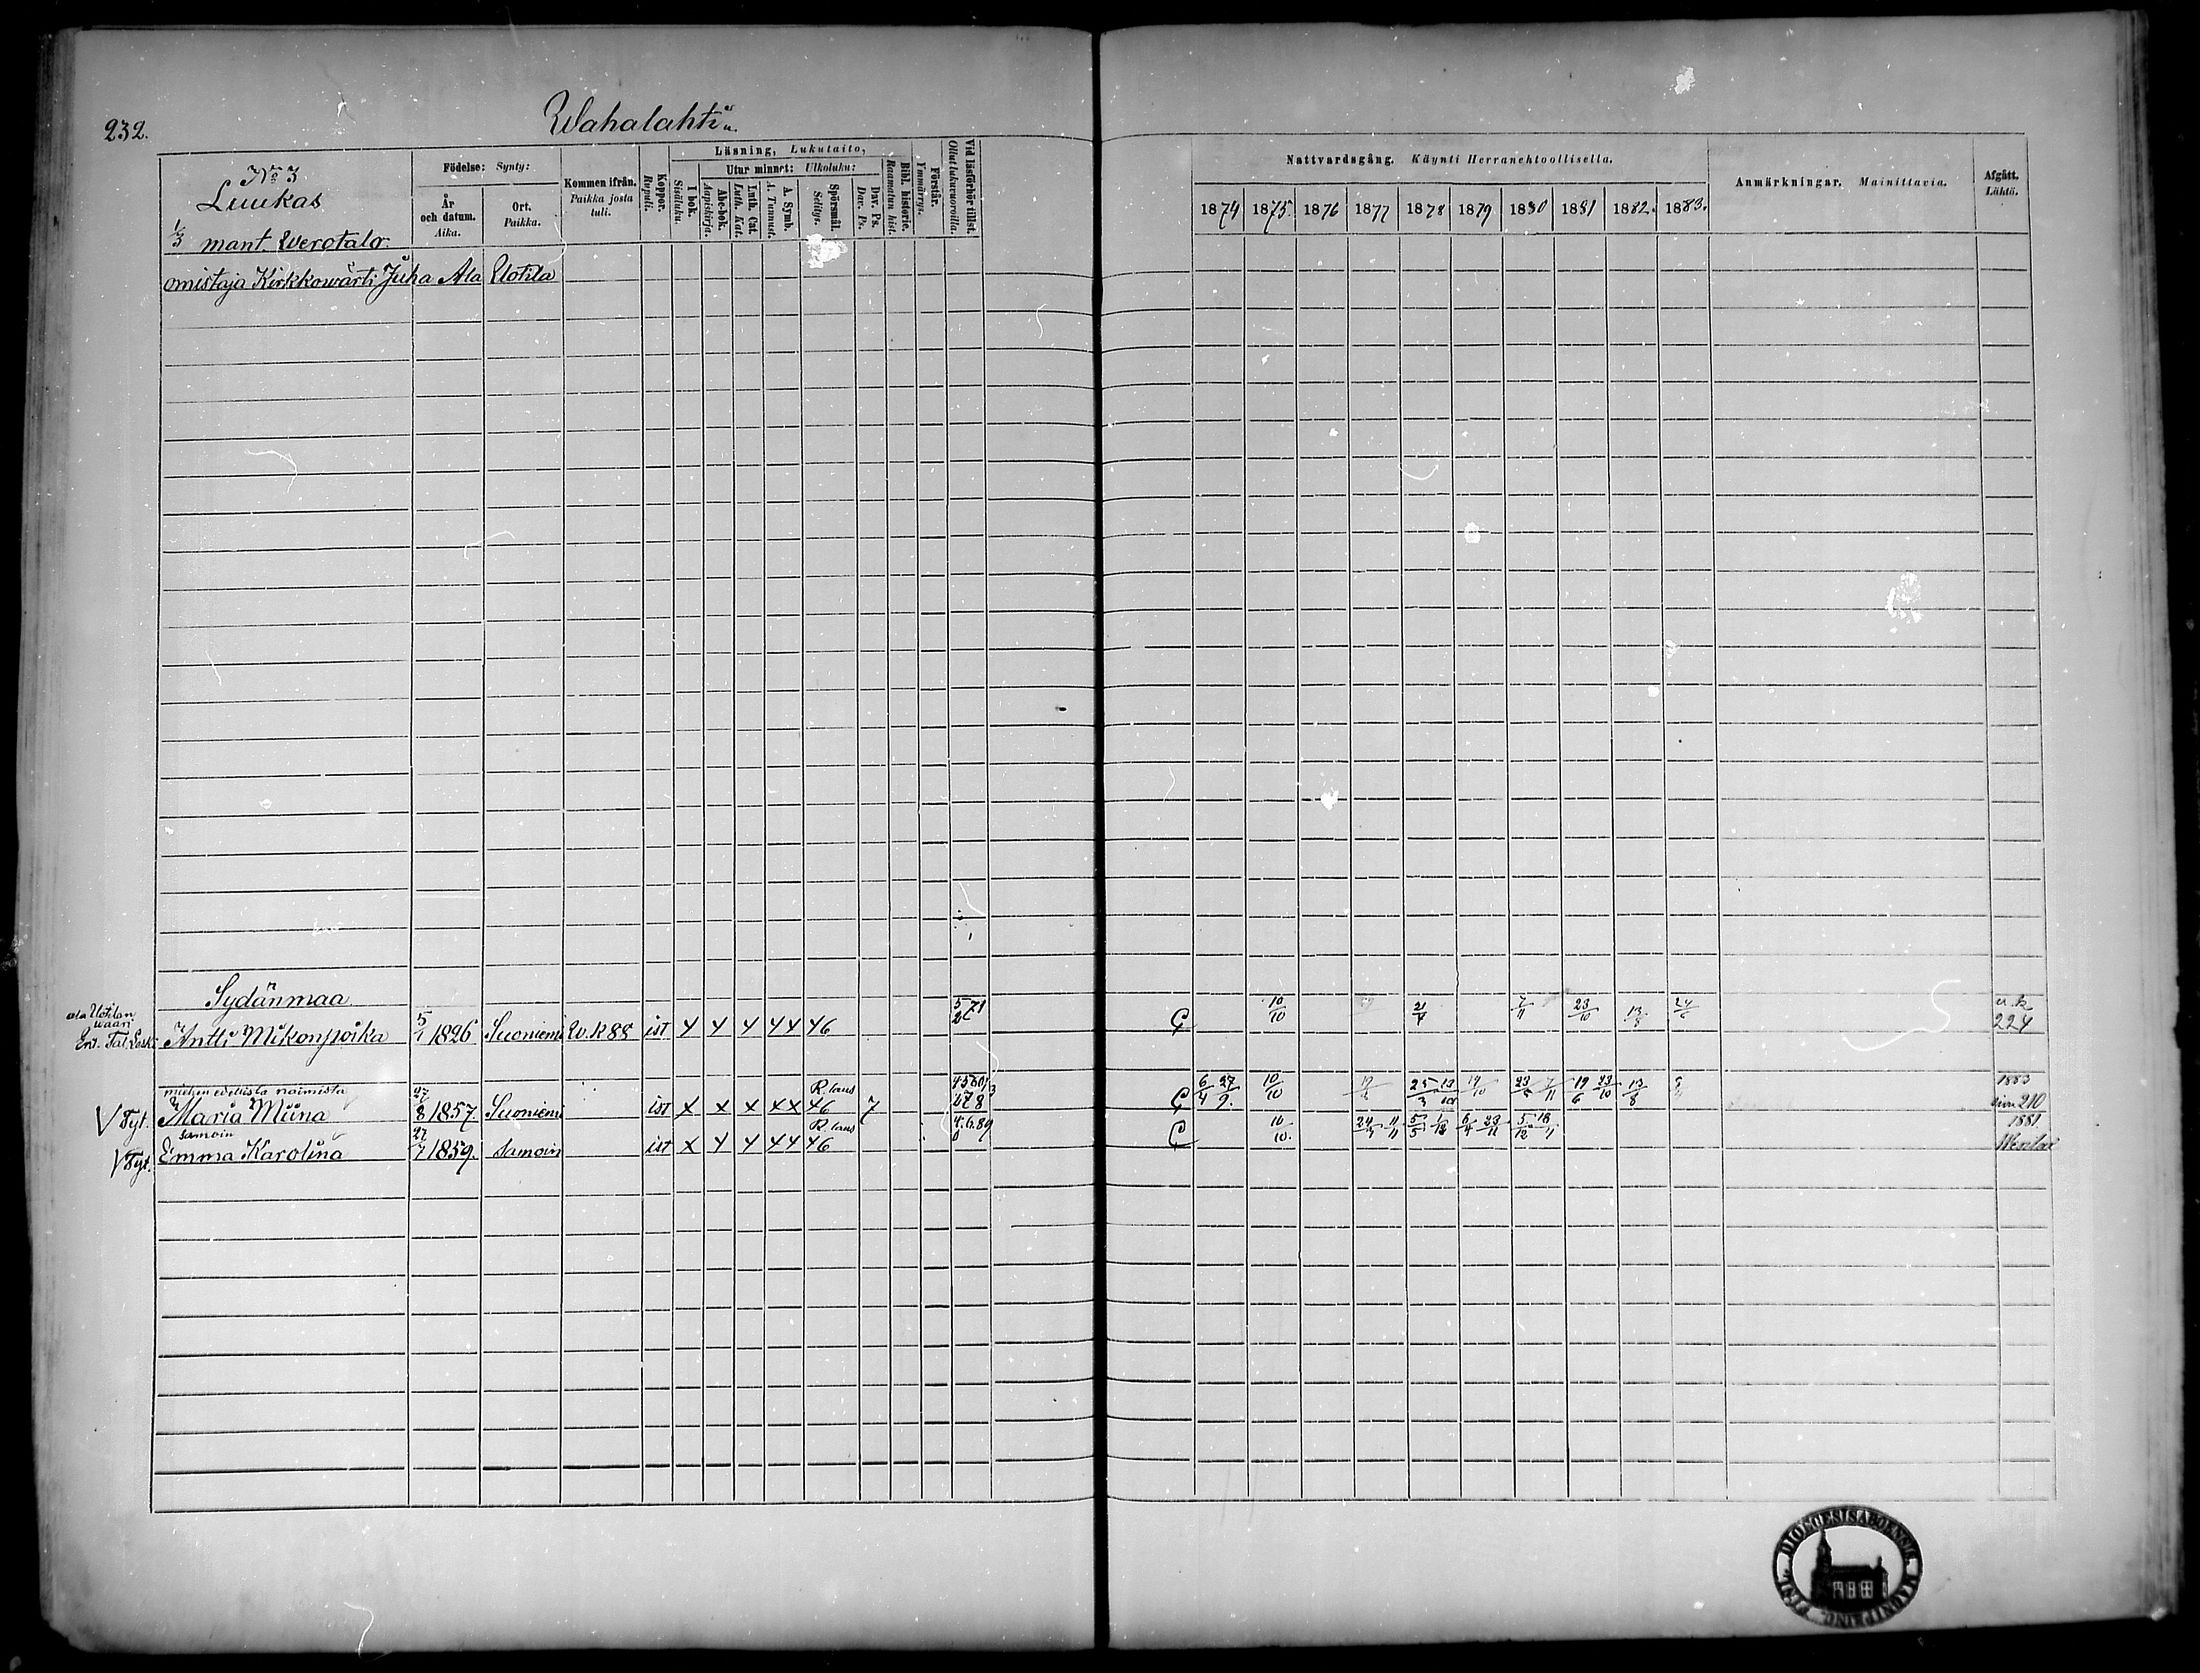 232.
Wahalahti
No 3
Luukas
1/3 mant. Werotalo.
omistaja Kirkkowärti Juha Ala Uotila
Födelse: Synty:
År och datum. Aika.
Ort. Paikka.
Kommen ifrån. Paikka josta tuli.
Koppor. Rupuli.
Läsning, Lukutaito,
I bok. Sisäluku.
Utur minnet: Ulkoluku:
Abc-bok. Aapiskirja.
Luth. Cat. Luth. Kat.
A. Symb. A. Tunnust.
Spörsmål. Selitys.
Dav. Ps. Dav. Ps.
Bibl. historie. Raamatun hist.
Förstår. Ymmärrys.
Vid läsförhör tillst. Ollut lukuvuoroilla.
Nattvardsgång. Käynti Herranehtoollisella.
1874 1875. 1876 1877 1878 1879 1880 1881 1882. 1883.
Anmärkningar. Mainittavia.
Afgått. Lähtö.
Sydänmaa
ala Uotilan
waari
Ent. Tal. Lesk. Antti Mikonpoika 5/1 1826 Suoniemi W.k 88 ist 46 224
miehen edellistä naimista
Tyt. Maria Miina 27/8 1857. Suoniemi ist x x x x x 46 7 10/10 1883 siv. 210
samoin
Tyt. Emma Karolina 27/7 1859. samoin ist 46 10/10. 1881.
FINL. DIOECESIS ABOENSIS MAGNI PRINC.